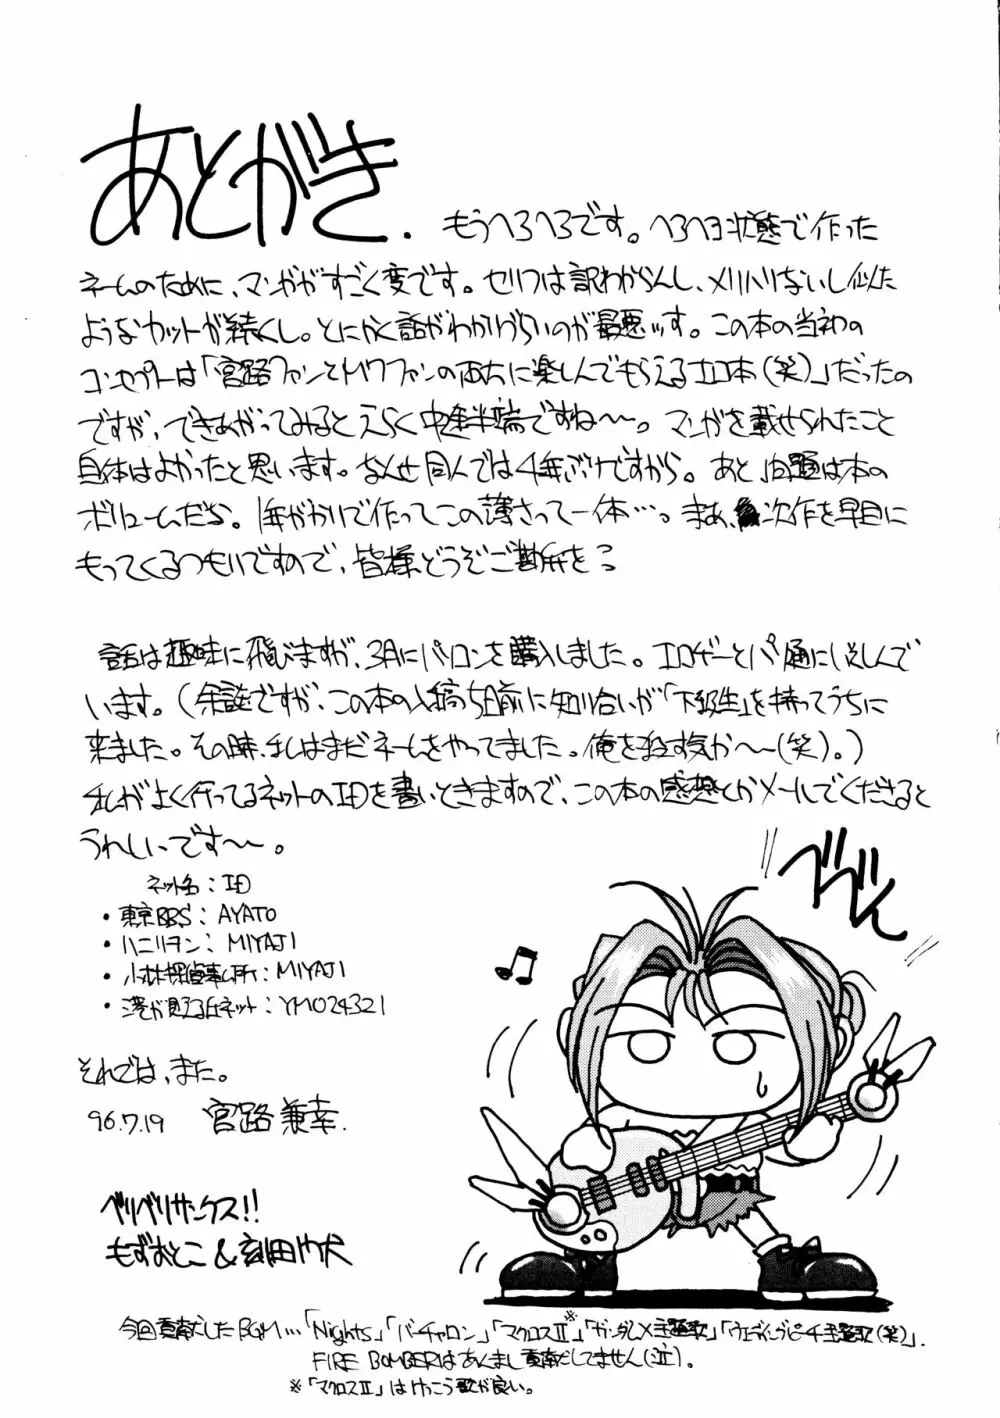 あとがき.
もうへろへろです。へろへろ状態で作った
ネームのために、マンガがすごく変です。セリフは訳わからんし、メリハリないし似た
ようなカットが続くし。とにかく話がわかりづらいのが最悪ッす。この本の当初の
コンセプトは「宮路ファンとMWファンの両方に楽しんでもらえるエロ本(笑)」だったの
ですが、できあがってみるとえらく中途半端ですね〜〜。マンガを載せられたこと
自体はよかったと思います。なんせ同人では4年ぶりですから。あと、問題は本の
ボリュームだな。1年がかりで作ってこの薄さって一体…。まあ、次作を早目に
もってくるつもりですので、皆様どうぞご勘弁を
話は趣味に飛びますが、3月にパソコンを購入しました。エロゲーとパソ通にいそしんで
います。(余談ですが、この本の入稿5日前に知り合いが「下級生」を持ってうちに
来ました。その時、私はまだネームをやってました。俺を殺す気か〜〜(笑)。)
私がよく行ってるネットのIDを書いときますので、この本の感想とかメールでくださると
うれしいです〜〜。
ネット名：ID
・東京BBS：AYATO
・ハニリヲン：MIYAJI
・小林探偵事務所：MIYAJI
・港が見える丘ネット：YM024321
それでは、また。
96.7.19 宮路兼幸.
ベリベリサンクス!!
もずおとこ&
♪
ベベん
今回貢献したBGM…「Nights」「バーチャロン」「マクロスⅡ※」「ガンダムX主題歌」「ウェディングピーチ主題歌(笑)」.
FIRE BOMBERはあんまし貢献してません(泣).
※「マクロスⅡ」はけっこう歌が良い。